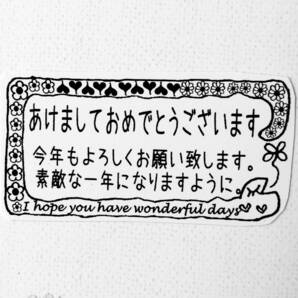 あけましておめでとうございます
今年もよろしくお願い致します。
素敵な一年になりますように。
I hope you have wonderful days